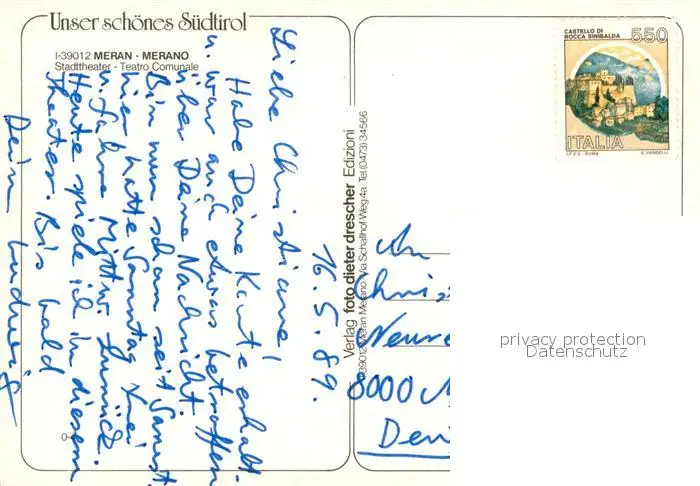 Unser schönes Südtirol
I-39012 MERAN - MERANO
Stadttheater - Teatro Comunale
16.5.89.
Liebe Christiane,
Habe Deine Karte erhalt.
u. war auch etwas betroffen
über Deine Nachricht.
Bin nun schon seit Samst.
hier hatte Sonntag frei
u. fahre Mittw. zurück.
Heute spiele ich in diesem
Theater. Bis bald
Dein Ludwig
Verlag foto dieter drescher Edizioni
39012 Meran Merano Via Schallhof Weg 4a Tel (0473) 34566
CASTELLO DI
ROCCA SINIBALDA
550
ITALIA
I.P.Z.S. - ROMA
E. VANGELLI
An
Chris
8000 M
privacy protection
Datenschutz